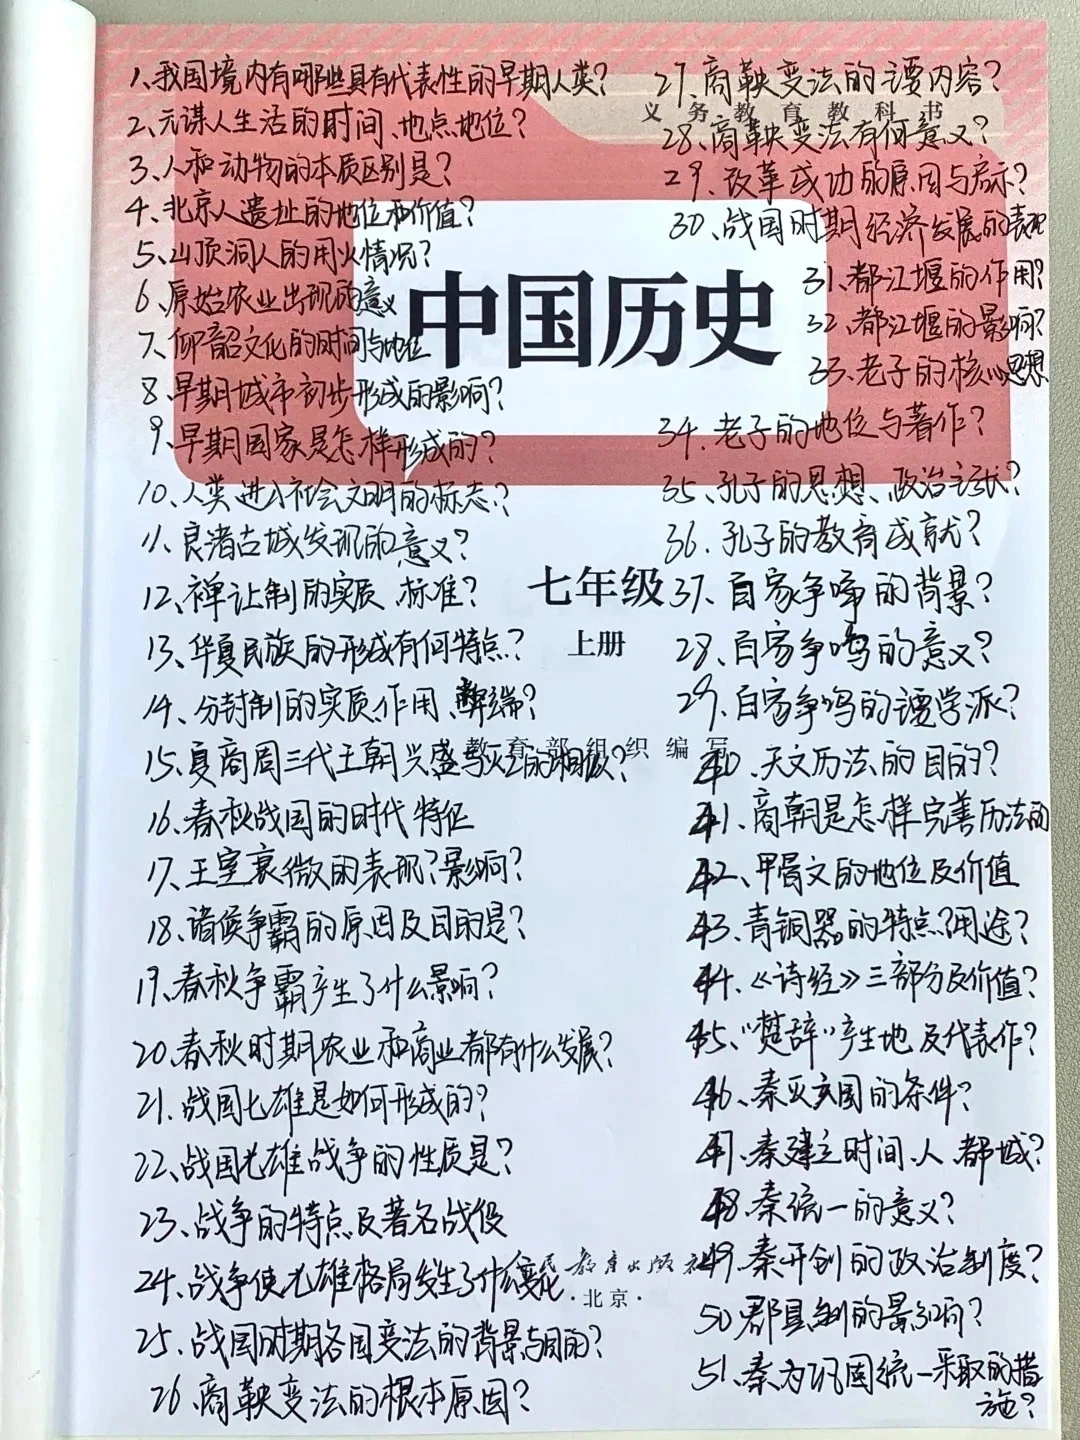 1、我国境内有哪些具有代表性的早期人类?
2、元谋人生活的时间、地点地位?
3、人和动物的本质区别是?
4、北京人遗址的地位和价值?
5、山顶洞人的用火情况?
6、原始农业出现的意义
7、仰韶文化的时间与地位
8、早期城市初步形成的影响?
9、早期国家是怎样形成的?
10、人类进入社会文明的标志?
11、良渚古城发现的意义?
12、禅让制的实质、标准?
13、华夏民族的形成有何特点?
14、分封制的实质、作用、弊端?
15、夏商周三代王朝兴盛与灭亡的相似?
16、春秋战国的时代特征
17、王室衰微的表现?影响?
18、诸侯争霸的原因及目的是?
19、春秋争霸产生了什么影响?
20、春秋时期农业和商业都有什么发展?
21、战国七雄是如何形成的?
22、战国七雄战争的性质是?
23、战争的特点及著名战役
24、战争使七雄格局发生了什么变化
25、战国时期各国变法的背景与目的?
26、商鞅变法的根本原因?
27、商鞅变法的主要内容?
义务教育教科书
28、商鞅变法有何意义?
29、改革成功的原因与启示?
30、战国时期经济发展的表现
31、都江堰的作用?
32、都江堰的影响?
33、老子的核心思想
中国历史
34、老子的地位与著作?
35、孔子的思想、政治主张?
36、孔子的教育成就?
七年级
上册
37、百家争鸣的背景?
28、百家争鸣的意义?
29、百家争鸣的主要学派?
教育部组织编写
40、天文历法的目的?
41、商朝是怎样完善历法的
42、甲骨文的地位及价值
43、青铜器的特点?用途?
44、《诗经》三部分及价值?
45、“楚辞”产生地及代表作?
46、秦灭六国的条件?
47、秦建立时间、人、都城?
48、秦统一的意义?
49、秦开创的政治制度?
人民教育出版社
·北京·
50、郡县制的影响?
51、秦为巩固统一采取的措
施?